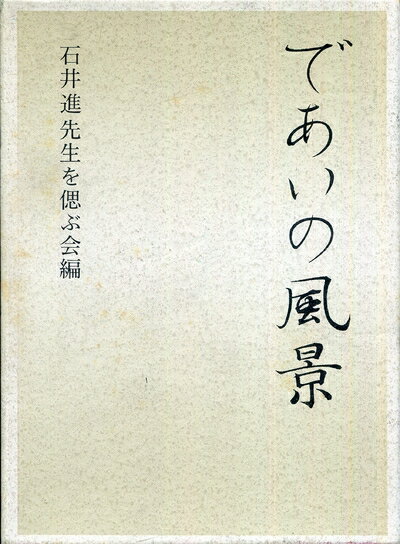 であいの風景
石井進先生を偲ぶ会編